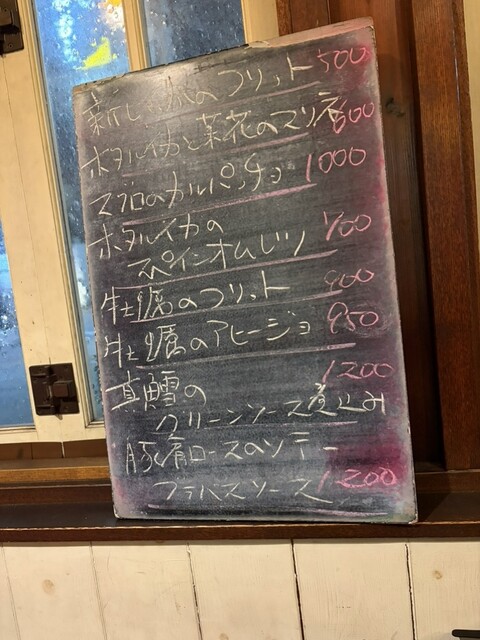 新じゃがのフリット 500
ホタルイカと菜花のマリネ 800
マグロのカルパッチョ 1000
ホタルイカの 700
スペインオムレツ
牡蠣のフリット 900
牡蠣のアヒージョ 950
真鱈の 1200
グリーンソース煮込み
豚肩ロースのソテー
ソース 1200